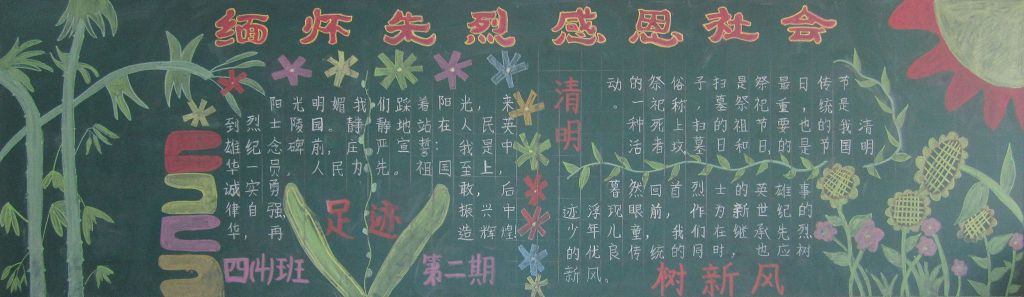 缅怀先烈感恩社会
阳光明媚我们踩着阳光,来
到烈士陵园。静静地站在人民英
雄纪念碑前,庄严宣誓:我是中
华一员。人民为先。祖国至上,
诚实勇敢,后
律自强,振兴中
华,再造辉煌
足迹
四(4)班
第二期
清明
清明
节是我国
传统的节
日,也是
最重要的
祭祀节日,
是祭祖和
扫墓的日
子,扫墓
俗称上坟,
祭祀死者
的一种活
动。
暮然回首,烈士的英雄事
迹浮现眼前,作为新世纪的
少年儿童,我们在继承先烈
的优良传统同时,也应树
新风。
树新风